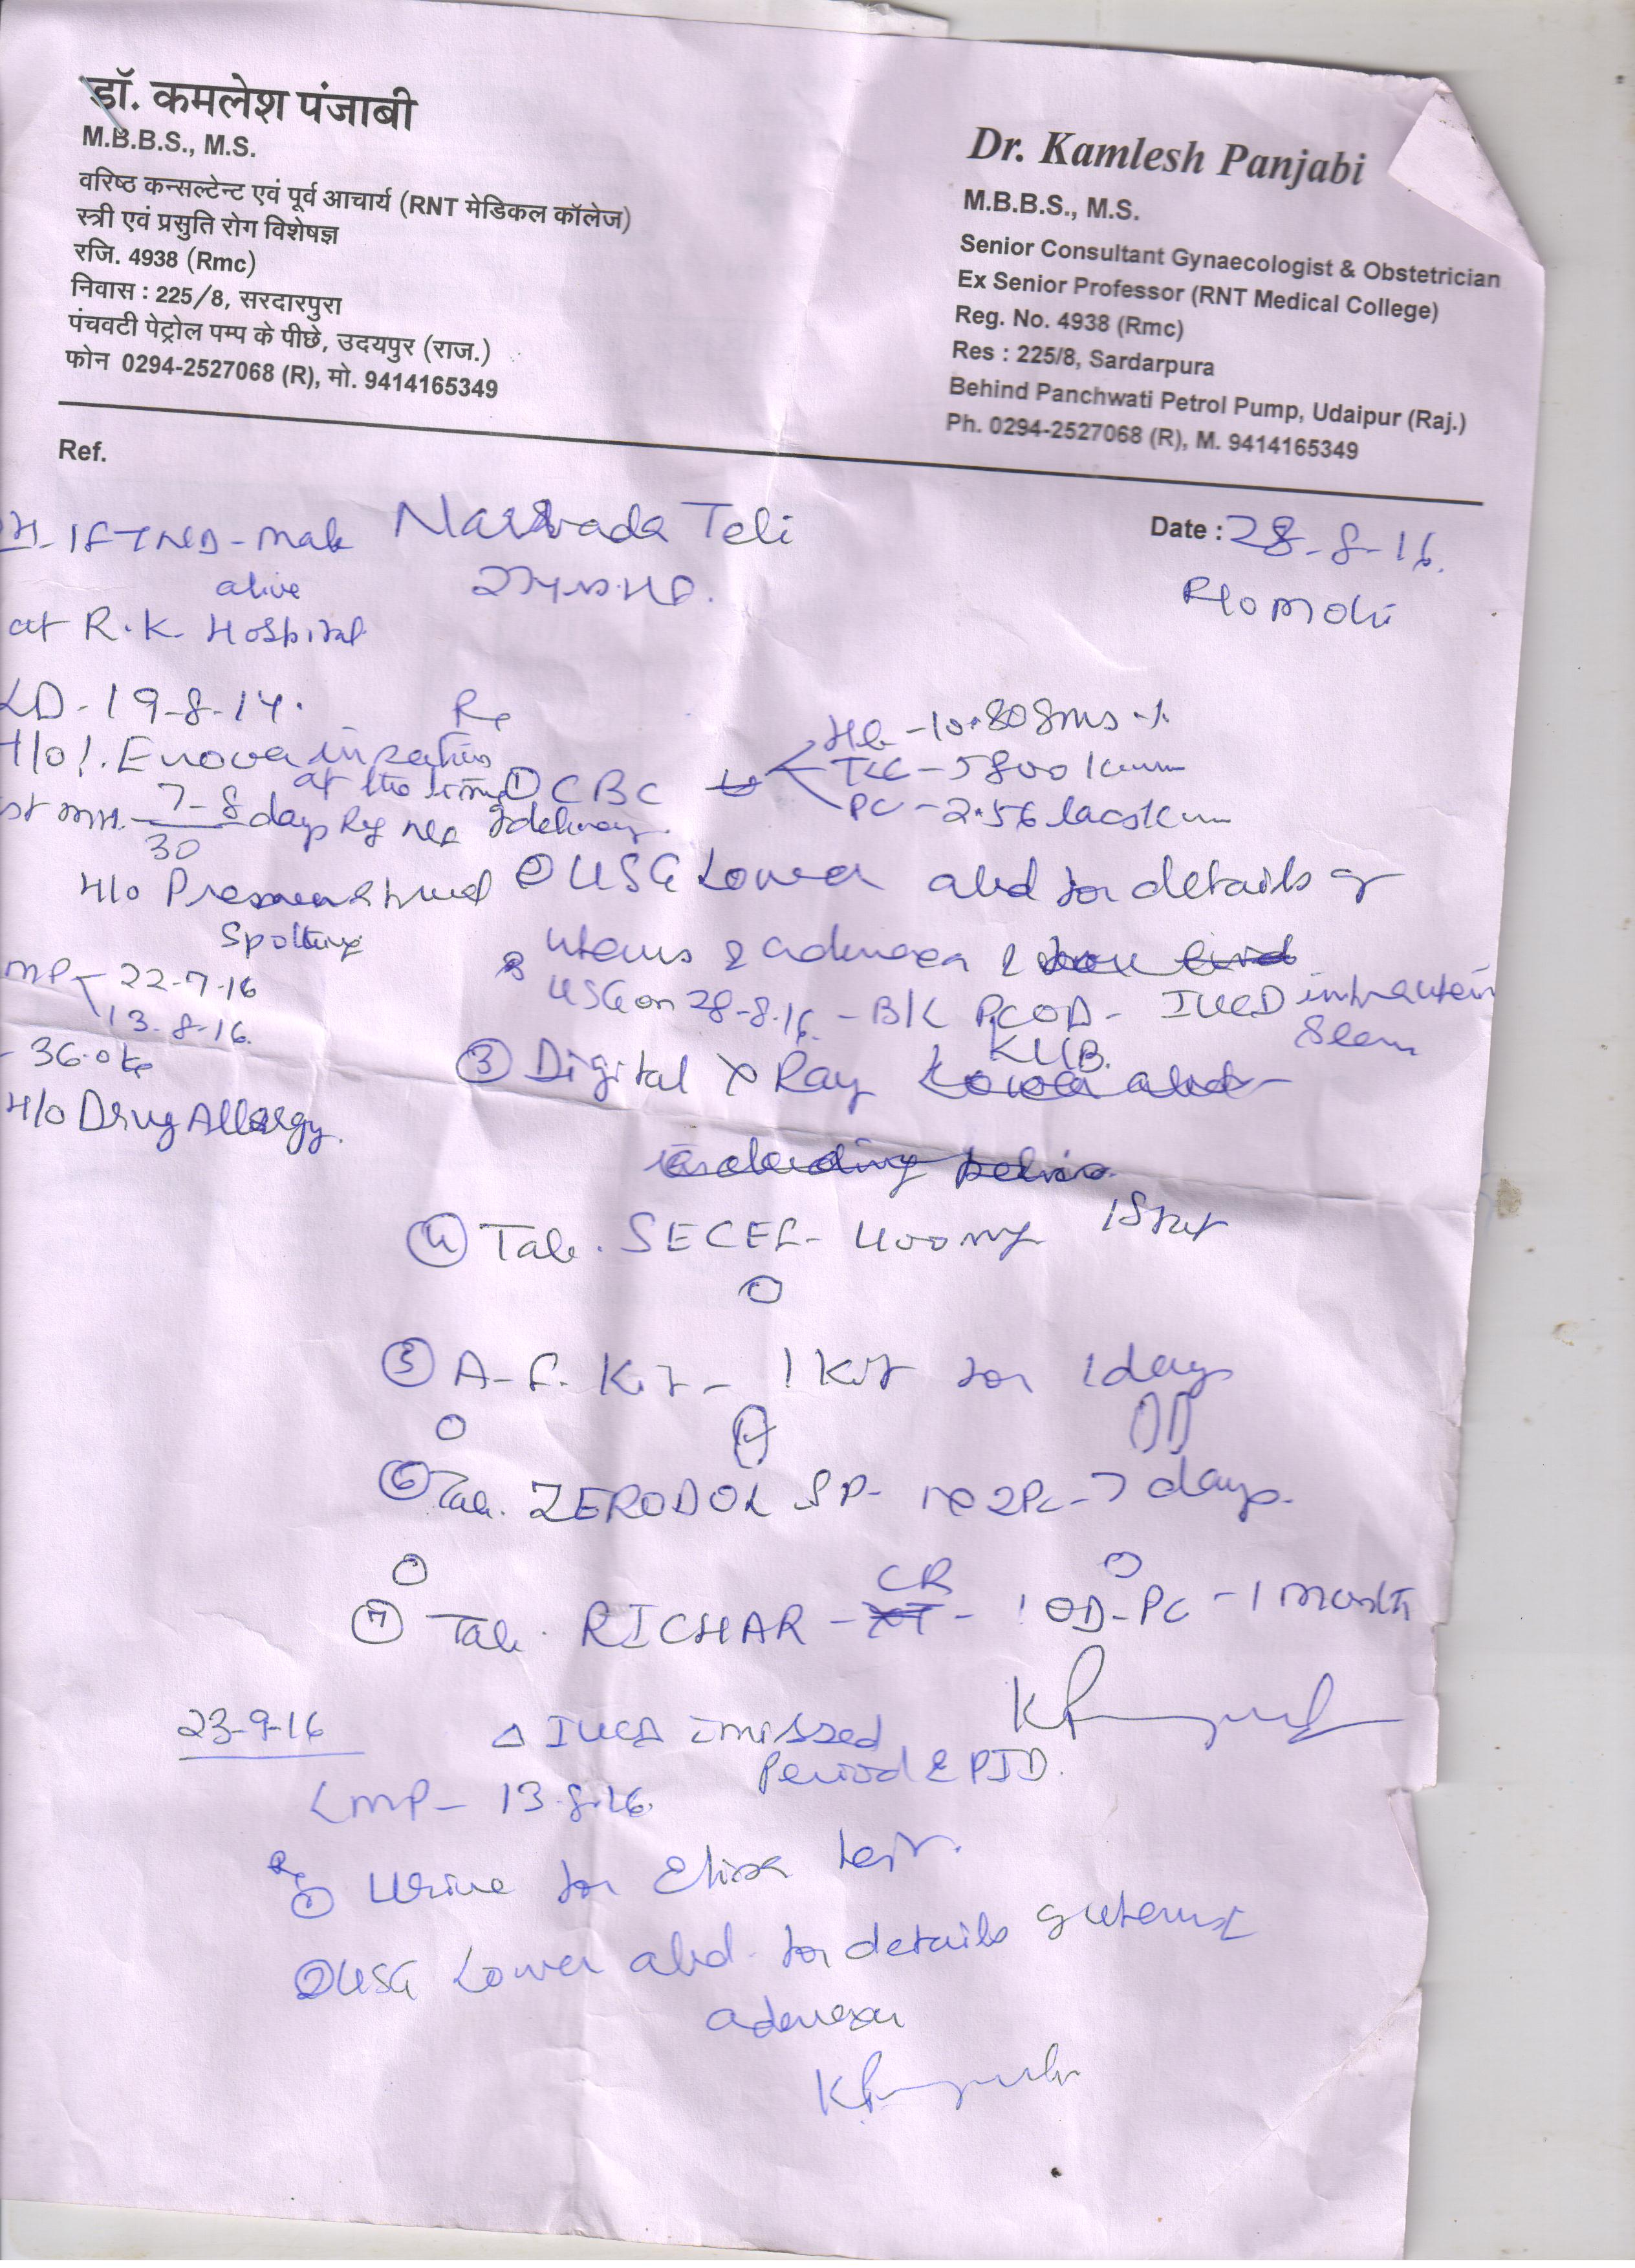 डॉ. कमलेश पंजाबी
M.B.B.S., M.S.
वरिष्ठ कन्सल्टेन्ट एवं पूर्व आचार्य (RNT मेडिकल कॉलेज)
स्त्री एवं प्रसुति रोग विशेषज्ञ
रजि. 4938 (Rmc)
निवास : 225/8, सरदारपुरा
पंचवटी पेट्रोल पम्प के पीछे, उदयपुर (राज.)
फोन 0294-2527068 (R), मो. 9414165349
Dr. Kamlesh Panjabi
M.B.B.S., M.S.
Senior Consultant Gynaecologist & Obstetrician
Ex Senior Professor (RNT Medical College)
Reg. No. 4938 (Rmc)
Res : 225/8, Sardarpura
Behind Panchwati Petrol Pump, Udaipur (Raj.)
Ph. 0294-2527068 (R), M. 9414165349
Ref.
Teli
Date : 28-8-16.
alive
at R.K. Hospital
LD - 19-8-14.
at the time
7-8 days
30
H/o Premenstrual
Spotting
MP - 22-7-16
13-8-16.
- 36.0 kg
H/o Drug Allergy.
① CBC
Hb - 10.80 gms %
TLC - 5800 /cumm
PC - 2.56 lacs/cumm
② USG Lower abd for details of
uterus & adenexa &
USG on 28-8-16. - B/L PCOD - IUCD intrauterin
Seen
③ Digital X Ray KUB.
④ Tab. SECEF - 400 mg 1 Stat
⑤ A-F. Kit - 1 Kit for 1 days
⑥ Tab. ZERODOL SP - PC - 7 days.
⑦ Tab. RICHAR - CR - 1 OD - PC - 1 month
23-9-16
Δ IUCD missed
Period & PID.
LMP - 13-8-16.
① Urine for Elisa test.
② USG Lower abd. for details of uterus &
adenexa